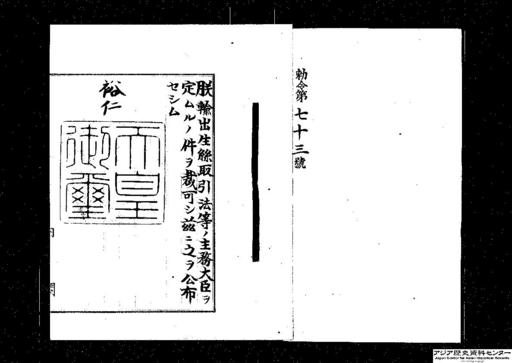 勅令第七十三號
朕輸出生絲取引法等ノ主務大臣ヲ
定ムルノ件ヲ裁可シ茲ニ之ヲ公布
セシム
裕仁
天皇
御璽
アジア歴史資料センター
Japan Center for Asian Historical Records